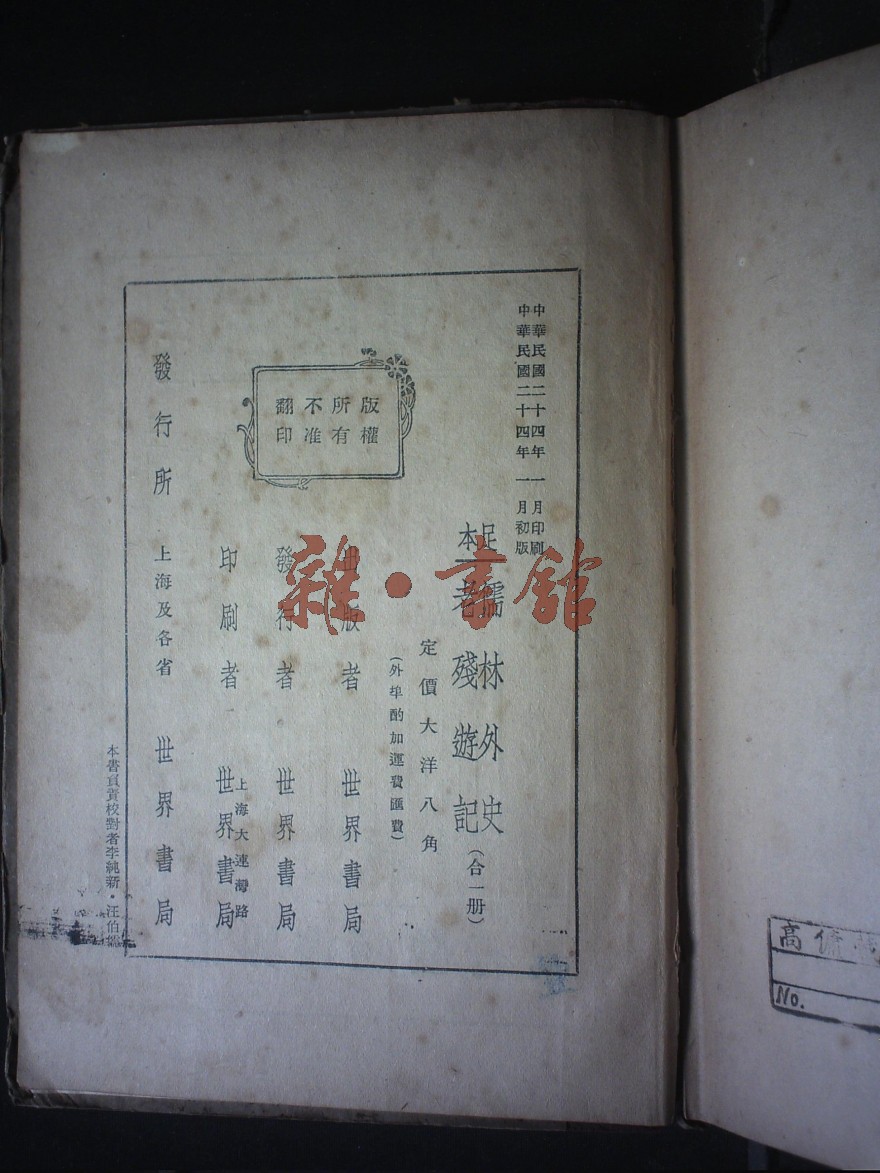 中華民國二十四年一月印刷
中華民國二十四年一月初版
足本
儒林外史
老殘遊記
(合一册)
定價大洋八角
(外埠酌加運費匯費)
版權
所有
不准
翻印
出版者 世界書局
發行者 世界書局
印刷者 上海大連灣路 世界書局
發行所 上海及各省 世界書局
本書負責校對者李純新·汪伯
雜·書館
高
No.